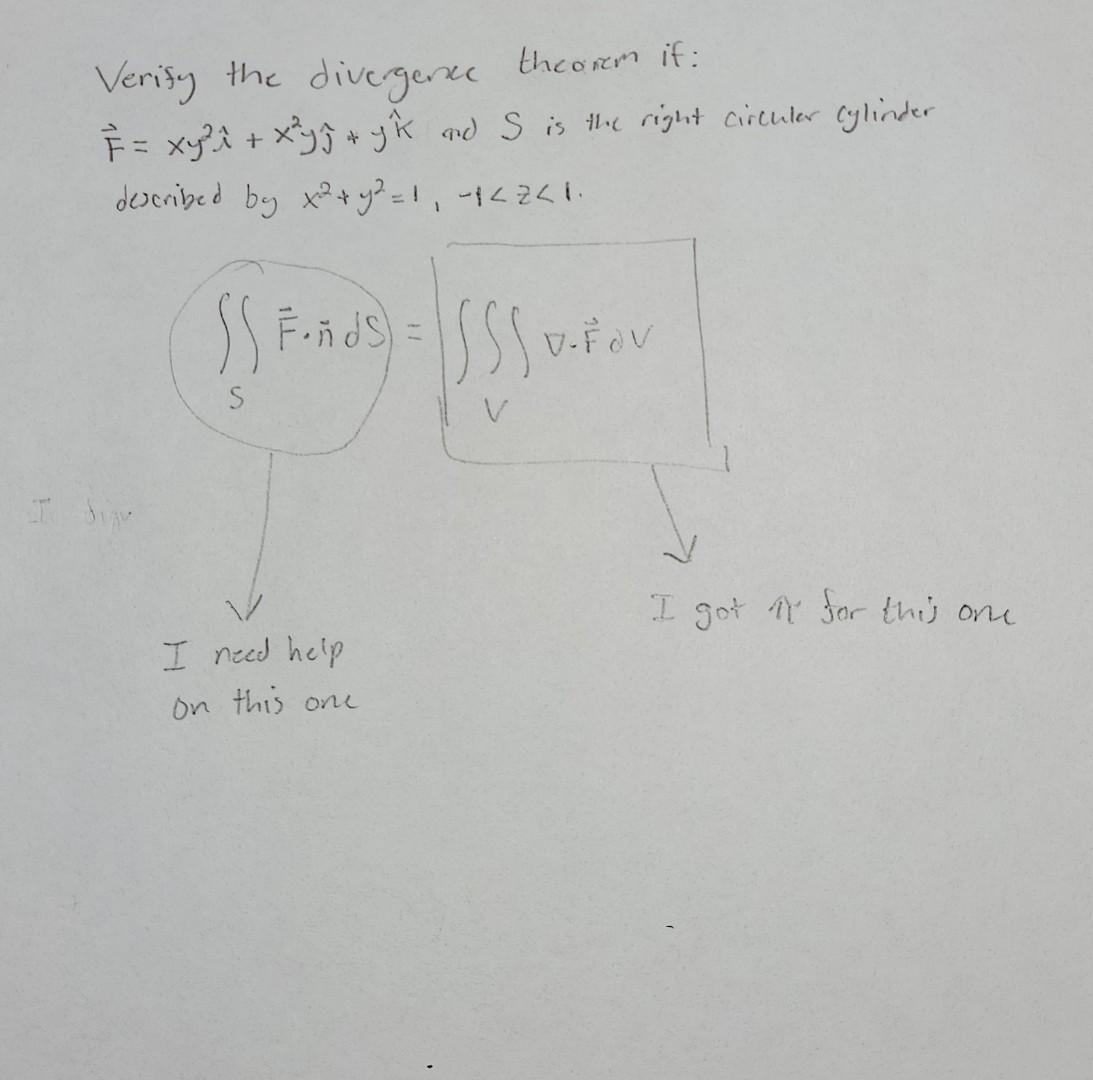 Verify the divergence theorem if:
F⃗ = xy²î + x²yĵ + yk̂ and S is the right circular cylinder
described by x² + y² = 1, -1 < z < 1.
∬_S F⃗·n⃗ dS = ∭_V ∇·F⃗ dV
I
I got π for this one
I need help
on this one